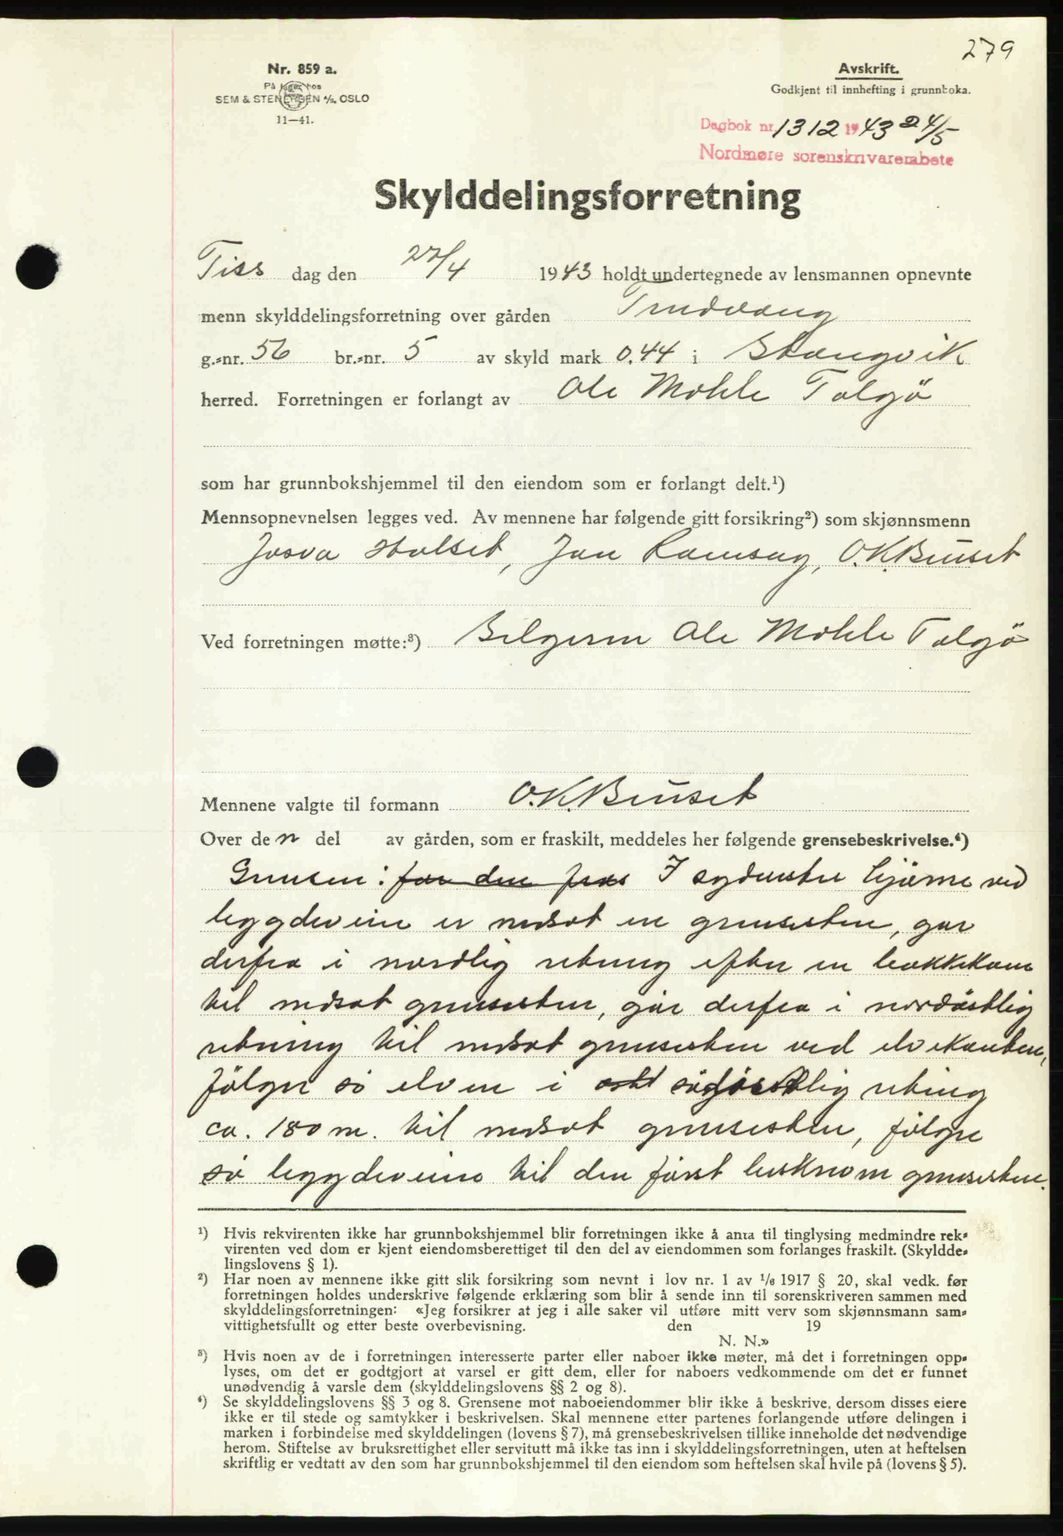 279
Nr. 859 a.
På lager hos
SEM & STENERSEN A/S, OSLO
11—41.
Avskrift.
Godkjent til innhefting i grunnboka.
Dagbok nr. 1312 1943 24/5
Nordmøre sorenskriverembete
Skylddelingsforretning
Tirs dag den 27/4 1943 holdt undertegnede av lensmannen opnevnte
menn skylddelingsforretning over gården Trudvang
g.-nr. 56 br.-nr. 5 av skyld mark 0,44 i Stangvik
herred. Forretningen er forlangt av Ole Mohle Talgö
som har grunnbokshjemmel til den eiendom som er forlangt delt.¹)
Mennsopnevnelsen legges ved. Av mennene har følgende gitt forsikring²) som skjønnsmenn
Josva Halset, Jon Ramsøy, O.K. Bruset
Ved forretningen møtte:³) Selgeren Ole Mohle Talgö
Mennene valgte til formann O.K. Bruset
Over den del av gården, som er fraskilt, meddeles her følgende grensebeskrivelse.⁴)
Grensen: for den fras I sydvestre hjørne ved
byggdeveien er nedsat en grensesten, går
derfra i nordlig retning efter en bakkekam
til nedsat grensesten, går derfra i nordöstlig
retning til nedsat grensesten ved elvekanten,
fölger så elven i ostl sydöstlig retning
ca. 180 m. til nedsat grensesten, fölger
så byggdeveien til den först beskrevne grensesten.
¹) Hvis rekvirenten ikke har grunnbokshjemmel blir forretningen ikke å anta til tinglysing medmindre rek-
virenten ved dom er kjent eiendomsberettiget til den del av eiendommen som forlanges fraskilt. (Skyldde-
lingslovens § 1).
²) Har noen av mennene ikke gitt slik forsikring som nevnt i lov nr. 1 av 1/6 1917 § 20, skal vedk. før
forretningen holdes underskrive følgende erklæring som blir å sende inn til sorenskriveren sammen med
skylddelingsforretningen: «Jeg forsikrer at jeg i alle saker vil utføre mitt verv som skjønnsmann sam-
vittighetsfullt og etter beste overbevisning. den 19
N. N.»
³) Hvis noen av de i forretningen interesserte parter eller naboer ikke møter, må det i forretningen opp-
lyses, om det er godtgjort at varsel er gitt dem, eller for naboers vedkommende om det er funnet
unødvendig å varsle dem (skylddelingslovens §§ 2 og 8).
⁴) Se skylddelingslovens §§ 3 og 8. Grensene mot naboeiendommer blir ikke å beskrive, dersom disses eiere
ikke er til stede og samtykker i beskrivelsen. Skal mennene etter partenes forlangende utføre delingen i
marken i forbindelse med skylddelingen (lovens § 7), må grensebeskrivelsen tillike inneholde det nødvendige
herom. Stiftelse av bruksrettighet eller servitutt må ikke tas inn i skylddelingsforretningen, uten at heftelsen
skriftlig er vedtatt av den som har grunnbokshjemmel til den eiendom som heftelsen skal hvile på (lovens § 5).